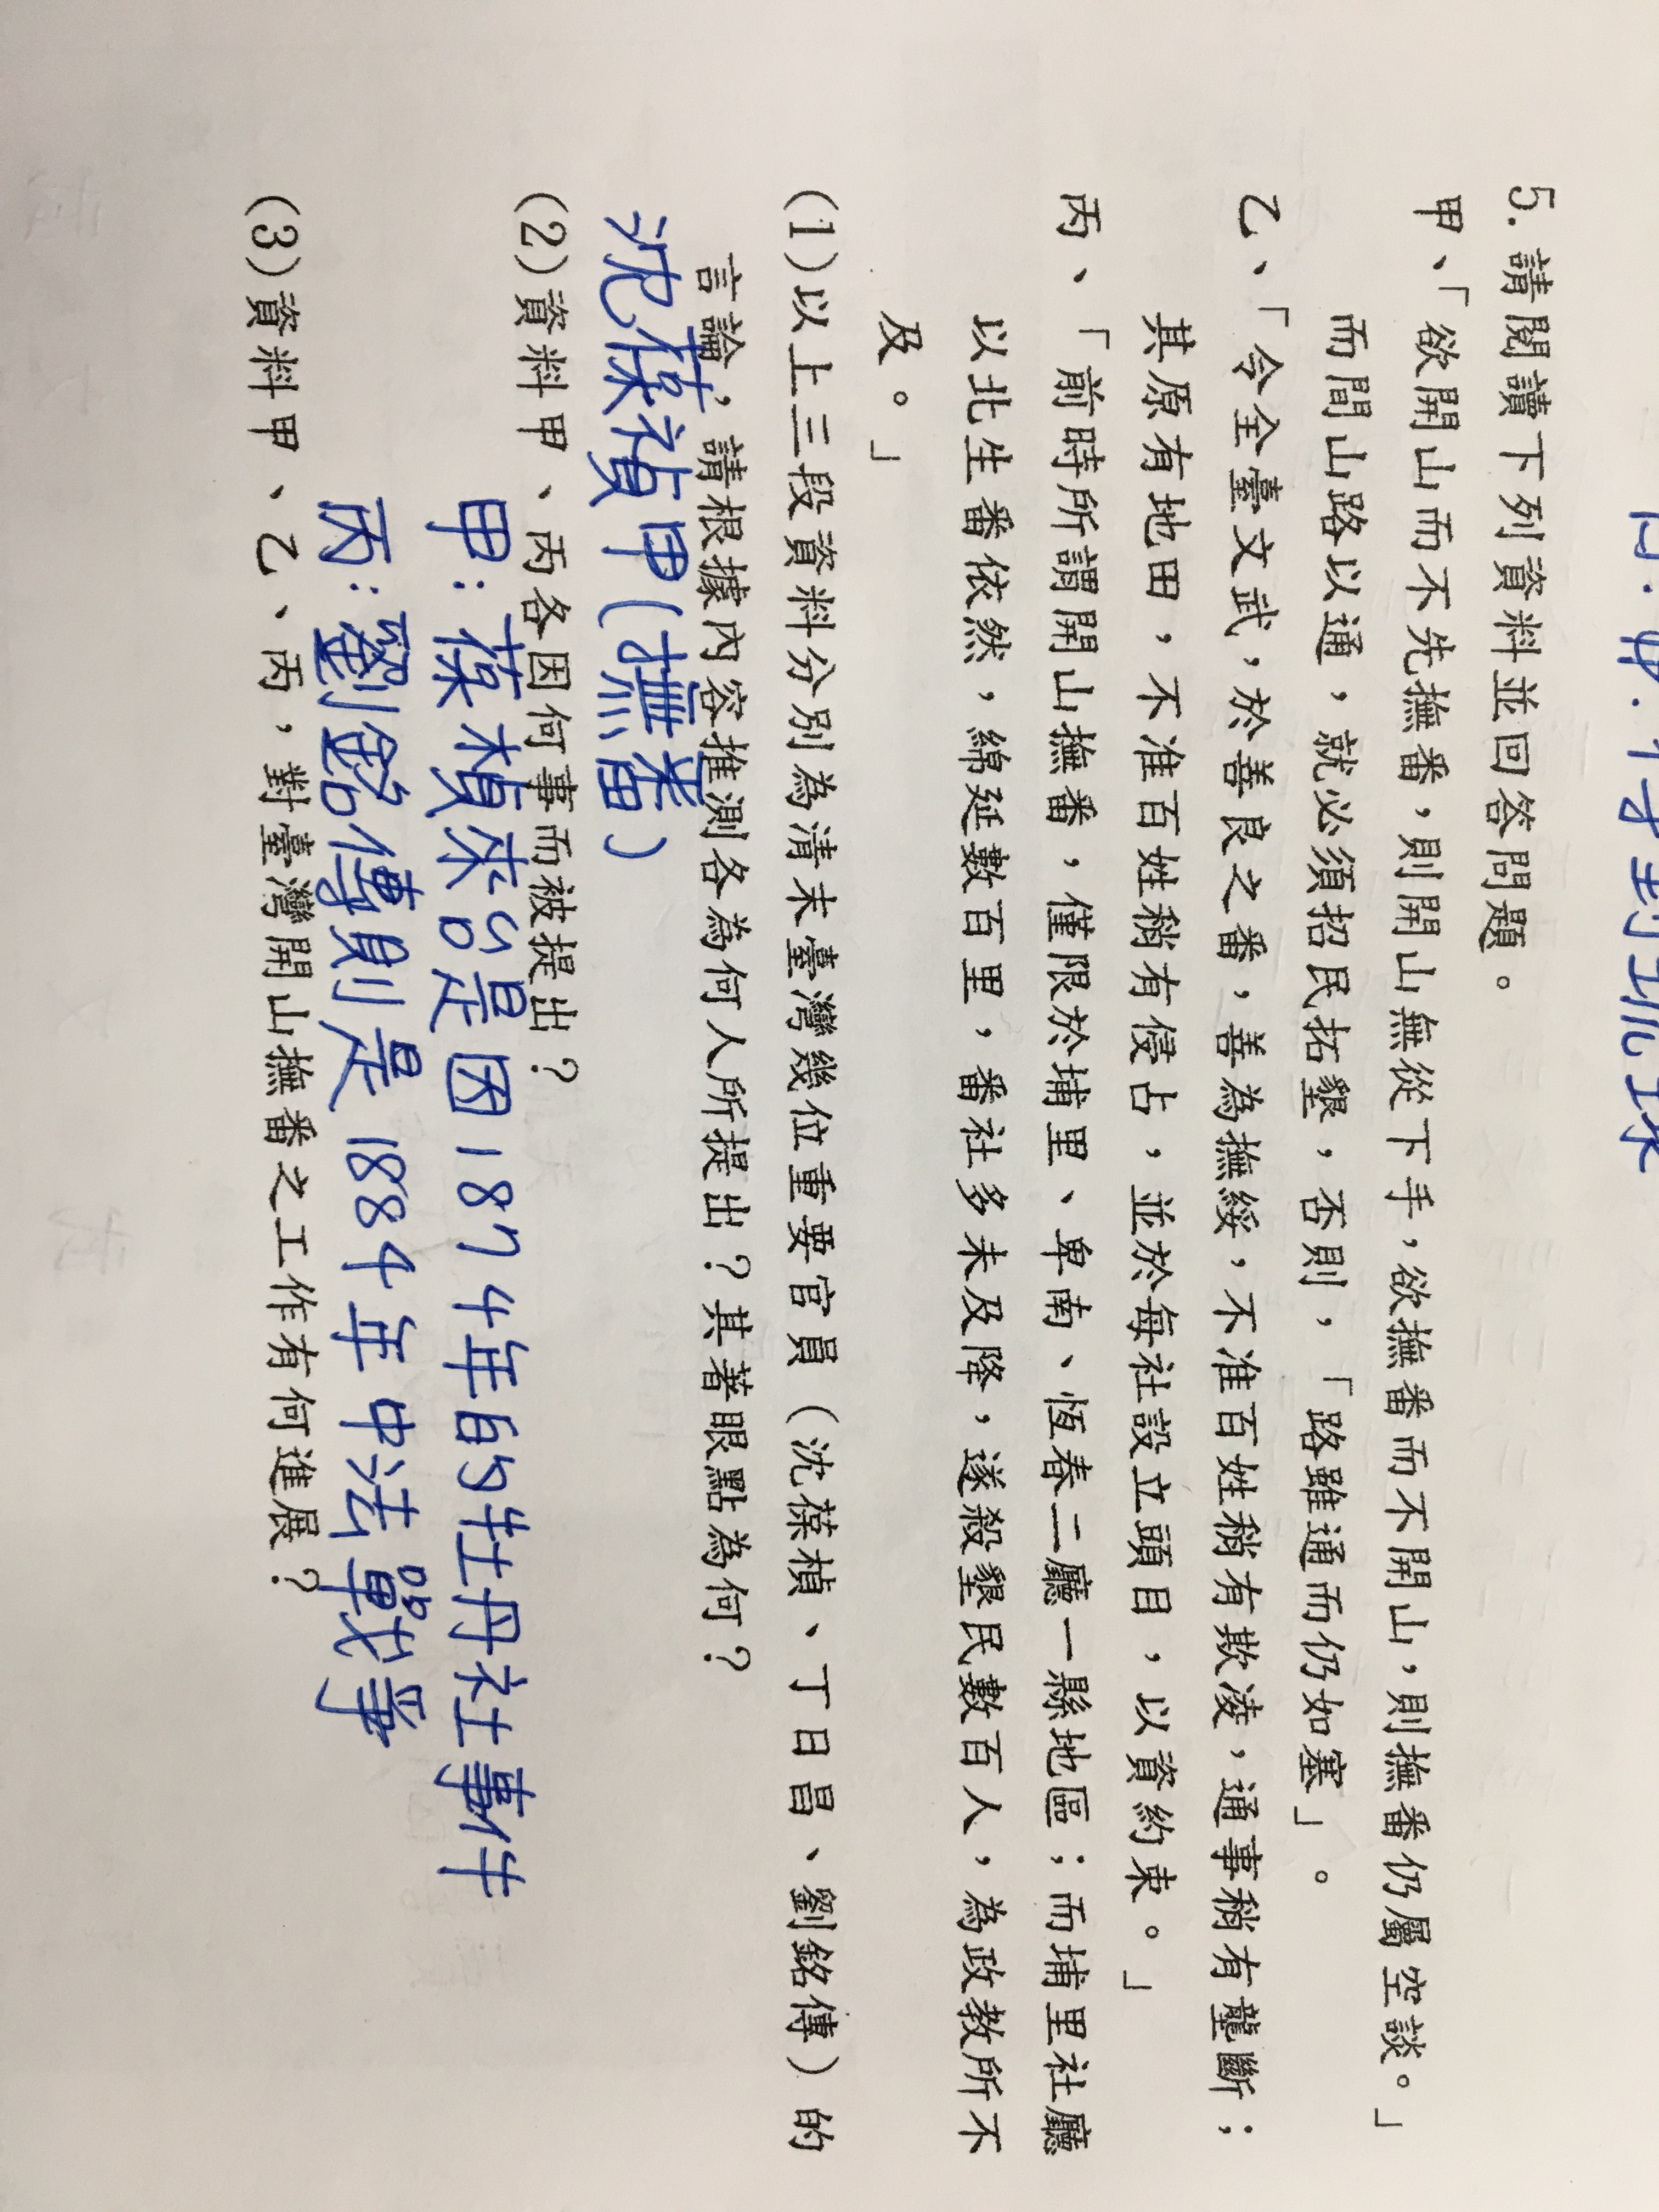 5. 請閱讀下列資料並回答問題。
甲、「欲開山而不先撫番，則開山無從下手，欲撫番而不開山，則撫番仍屬空談。」
而間山路以通，就必須招民拓墾，否則，「路雖通而仍如塞」。
乙、「令全臺文武，於善良之番，善為撫綏，不准百姓稍有欺凌，通事稍有壟斷；
其原有地田，不准百姓稍有侵占，並於每社設立頭目，以資約束。」
丙、「前時所謂開山撫番，僅限於埔里、卑南、恆春二廳一縣地區；而埔里社廳
以北生番依然，綿延數百里，番社多未及降，遂殺墾民數百人，為政教所不
及。」
(1)以上三段資料分別為清末臺灣幾位重要官員（沈葆楨、丁日昌、劉銘傳）的
言論，請根據內容推測各為何人所提出？其著眼點為何？
沈葆禎甲(撫番)
(2)資料甲、丙各因何事而被提出？
甲：葆楨來台是因1874年的牡丹社事件
丙：劉銘傳則是1884年中法戰爭
(3)資料甲、乙、丙，對臺灣開山撫番之工作有何進展？